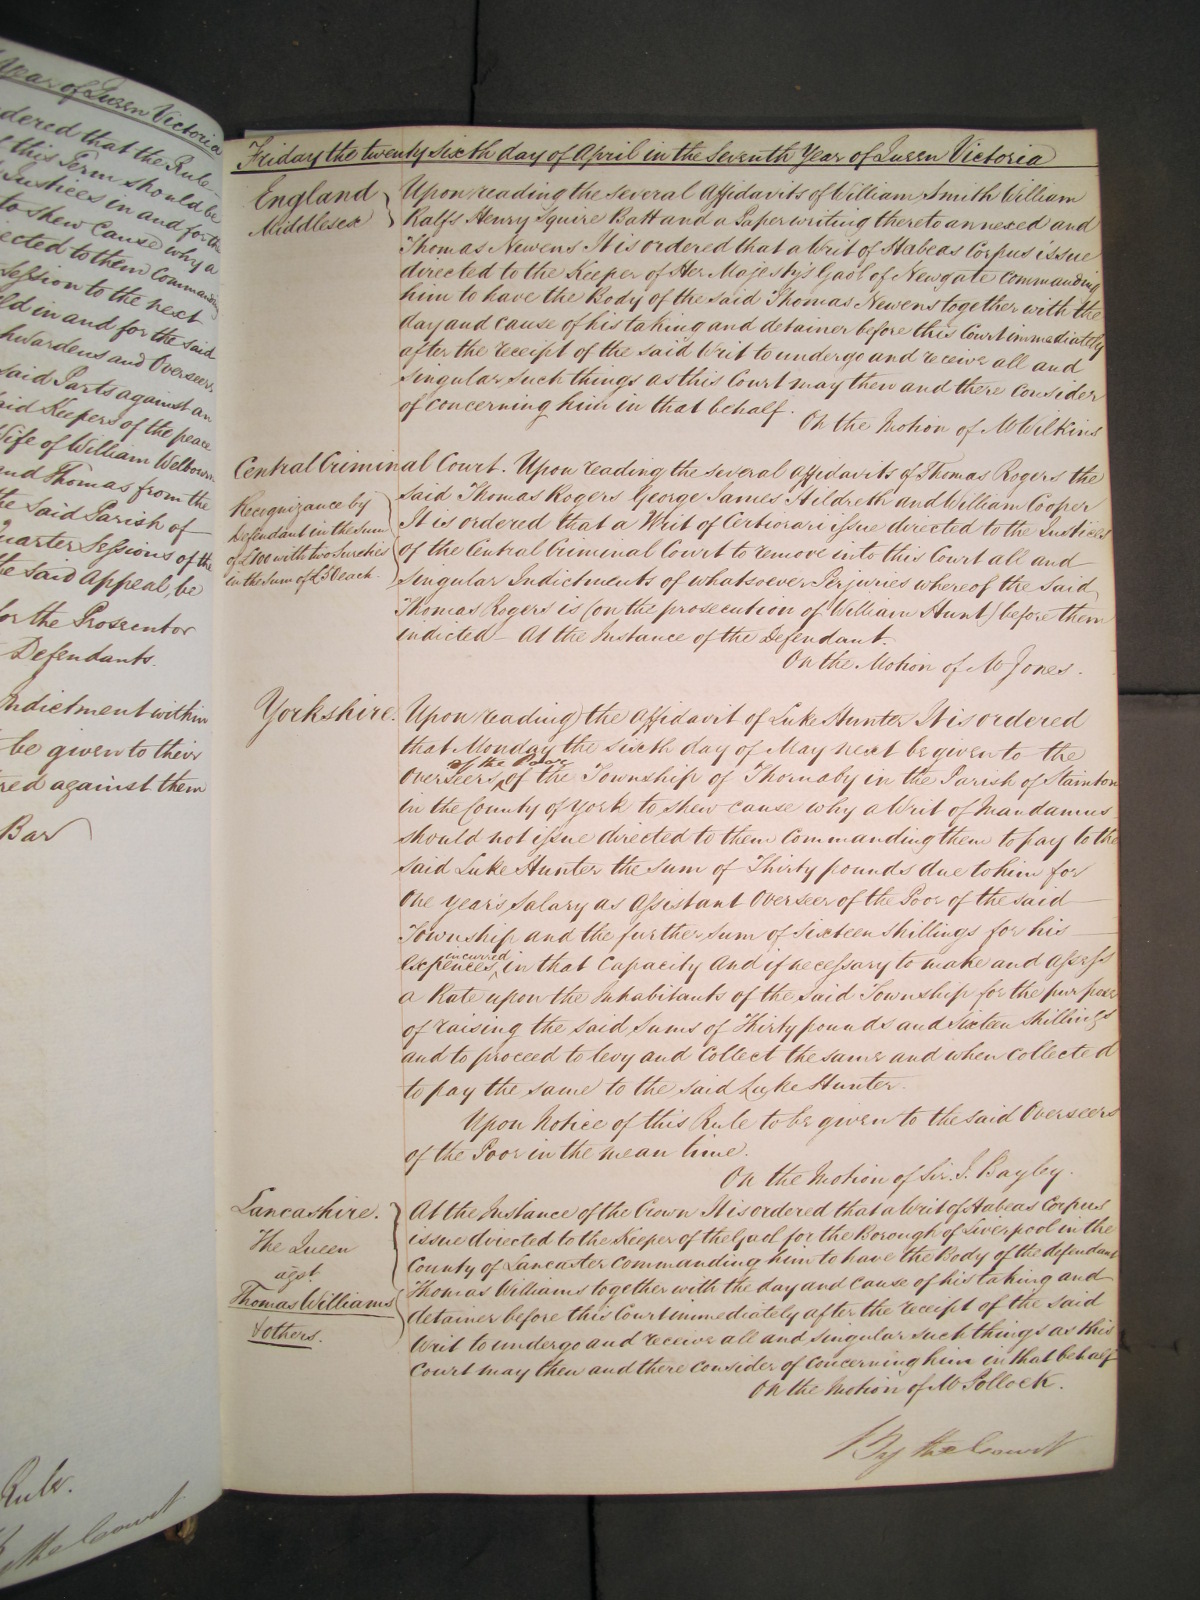 Year of Queen Victoria
dered that the Rule
this Term should be
Justices in and for the
to shew Cause why a
ected to them Commanding
Session to the next
ld in and for the said
hwardens and Overseers
said Parts against an
aid Keepers of the peace
Wife of William Welbourn
and Thomas from the
the said Parish of
Quarter Sessions of the
he said Appeal, be
for the Prosecutor
Defendants.
Indictment within
be given to their
red against them
Bar
Rule.
By the Court
Friday the twenty sixth day of April in the Seventh Year of Queen Victoria
England
Middlesex
Upon reading the several Affidavits of William Smith William
Ralfs Henry Squire Batt and a Paper writing thereto annexed and
Thomas Newens It is ordered that a Writ of Habeas Corpus issue
directed to the Keeper of Her Majesty's Gaol of Newgate Commanding
him to have the Body of the said Thomas Newens together with the
day and cause of his taking and detainer before this Court immediately
after the receipt of the said Writ to undergo and receive all and
singular such things as this Court may then and there consider
of concerning him in that behalf.
On the Motion of Mr Wilkins
Central Criminal Court. Upon reading the several Affidavits of Thomas Rogers the
Recognizance by
Defendant in the sum
of £100 with two Sureties
in the sum of £50 each.
said Thomas Rogers George James Hildreth and William Cooper
It is ordered that a Writ of Certiorari issue directed to the Justices
of the Central Criminal Court to remove into this Court all and
singular Indictments of whatsoever Perjuries whereof the said
Thomas Rogers is (on the prosecution of William Hunt) before them
indicted – At the Instance of the Defendant.
On the Motion of Mr Jones.
Yorkshire. Upon reading the Affidavit of Luke Hunter It is ordered
that Monday the sixth day of May next be given to the
of the Poor
Overseers of the Township of Thornaby in the Parish of Stainton
in the County of York to shew cause why a Writ of Mandamus
should not issue directed to them Commanding them to pay to the
said Luke Hunter the sum of Thirty pounds due to him for
One year's Salary as Assistant Overseer of the Poor of the said
Township and the further sum of Sixteen Shillings for his
incurred
expences in that Capacity And if necessary to make and assess
a Rate upon the Inhabitants of the said Township for the purpose
of raising the said Sums of Thirty pounds and Sixteen Shillings
and to proceed to levy and Collect the same and when collected
to pay the same to the said Luke Hunter.
Upon Notice of this Rule to be given to the said Overseers
of the Poor in the mean time.
On the Motion of Sir J. Bayley.
Lancashire.
The Queen
agst
Thomas Williams
& others.
At the Instance of the Crown It is ordered that a Writ of Habeas Corpus
issue directed to the Keeper of the Gaol for the Borough of Liverpool in the
County of Lancaster Commanding him to have the Body of the defendant
Thomas Williams together with the day and cause of his taking and
detainer before this Court immediately after the receipt of the said
Writ to undergo and receive all and singular such things as this
Court may then and there consider of concerning him in that behalf
On the Motion of Mr Pollock.
By the Court